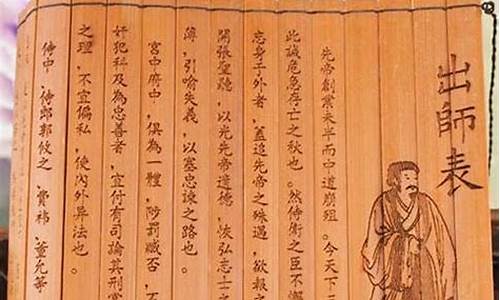 出師表
先帝創業未半而中道崩殂。今天下三
此誠危急存亡之秋也。然侍衛之臣不懈
忘身于外者，蓋追先帝之殊遇，欲報
開張聖聽，以光先帝遺德，恢弘志士之
薄，引喻失義，以塞忠諫之路也。
宮中府中，俱為一體，陟罰臧否，不
奸犯科及為忠善者，宜付有司論其刑賞
之理，不宜偏私，使內外異法也。
侍中、侍郎郭攸之、費禕、董允等